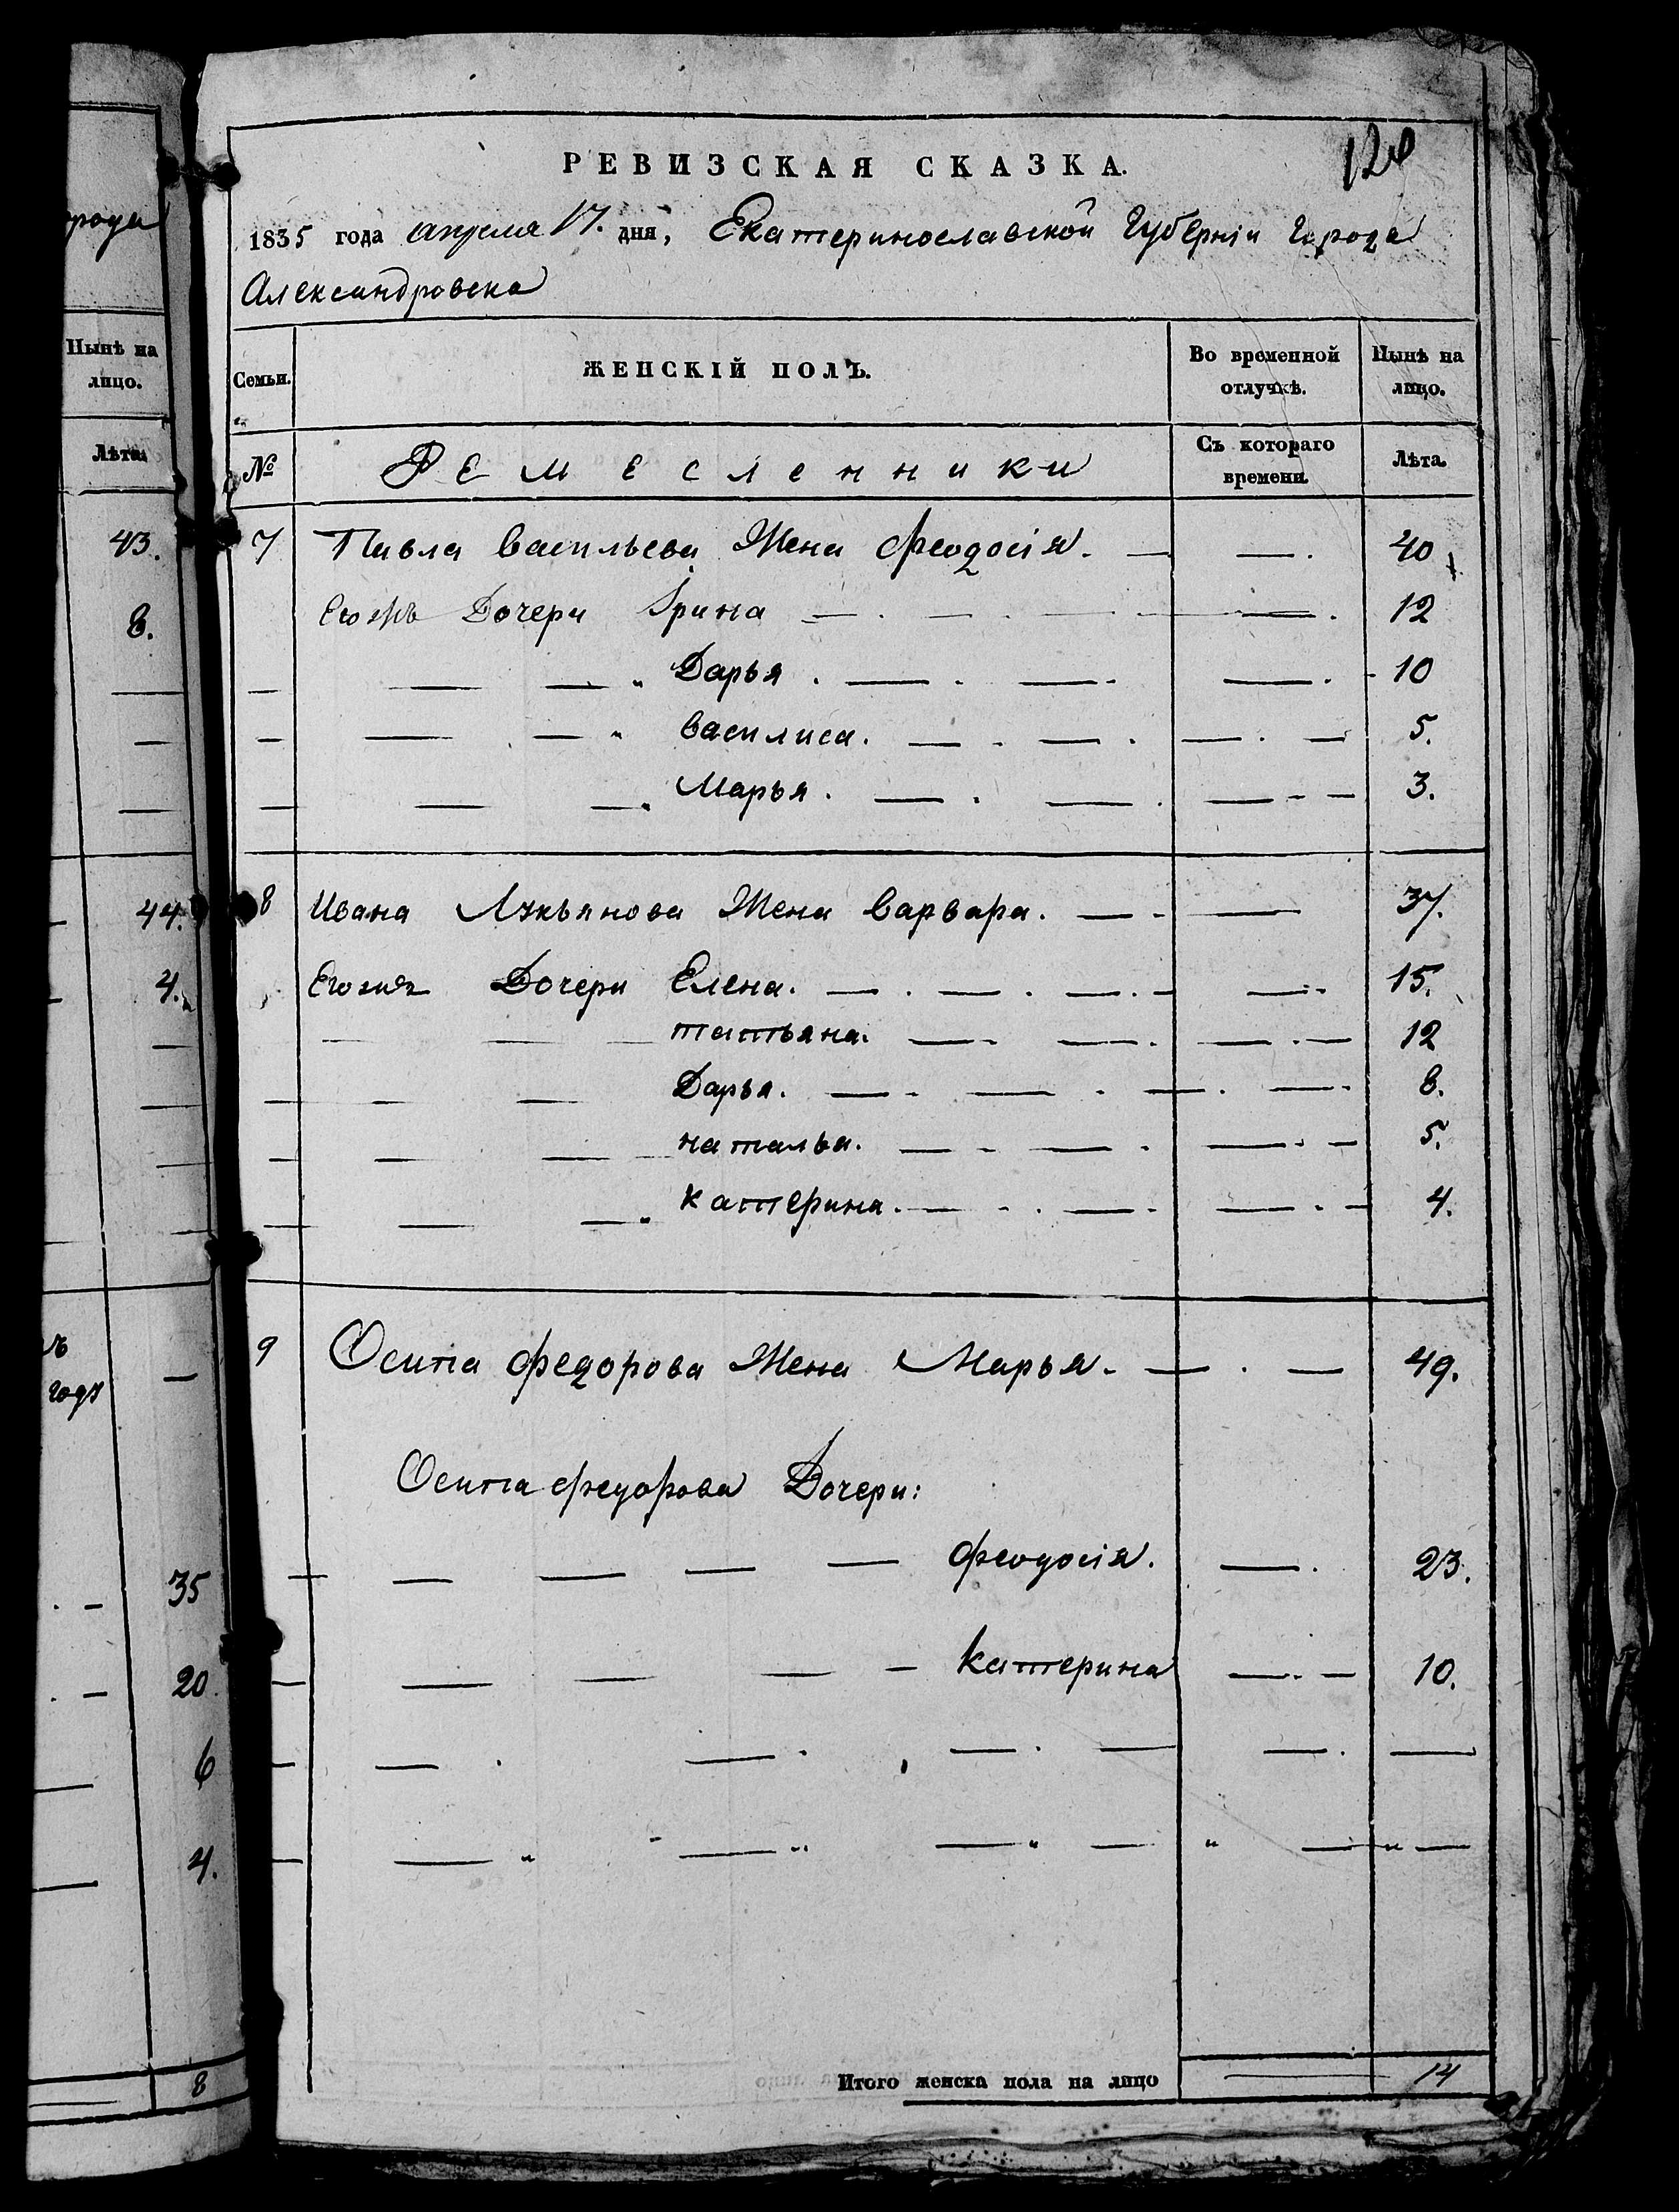 рода
Нынѣ на
лицо.
Лѣта.
43.
8.
44.
4.
году
35
20.
6
4.
8
РЕВИЗСКАЯ СКАЗКА.
1835 года апреля 17. дня, Екатеринославской Губерніи Города
Александровска
Семьи. ЖЕНСКІЙ ПОЛЪ. Во временной отлучкѣ. Нынѣ на лицо.
№ Ремесленники Съ котораго времени. Лѣта.
7 Павла Васильева Жена Феодосія. — — . 40
Егожъ Дочери Ірина — . — . — — . 12
— — — " Дарья . — . — . — . 10
— — . — " Василиса. — . — . — . — 5.
— — — " Марья . — . — . — - - 3.
8 Ивана Лукьянова Жена Варвара. — - — 37.
Егожъ Дочери Елена. — . — . — . — — . - 15.
— — — татьяна. — - — . — . — 12
— — — Дарья. — - — . — . — - 8.
— — — наталья. — - — . — . - 5.
— — — " катерина. — - . — . — . - 4.
9 Осипа Федорова Жена Марья. — . — 49.
Осипа федорова Дочери:
— — — — — феодосія. — . 23.
— — — — - Катерина — . - 10.
— — . — . , — . — — . —
— — " - — " — " — " — " —
Итого женска пола на лицо — 14